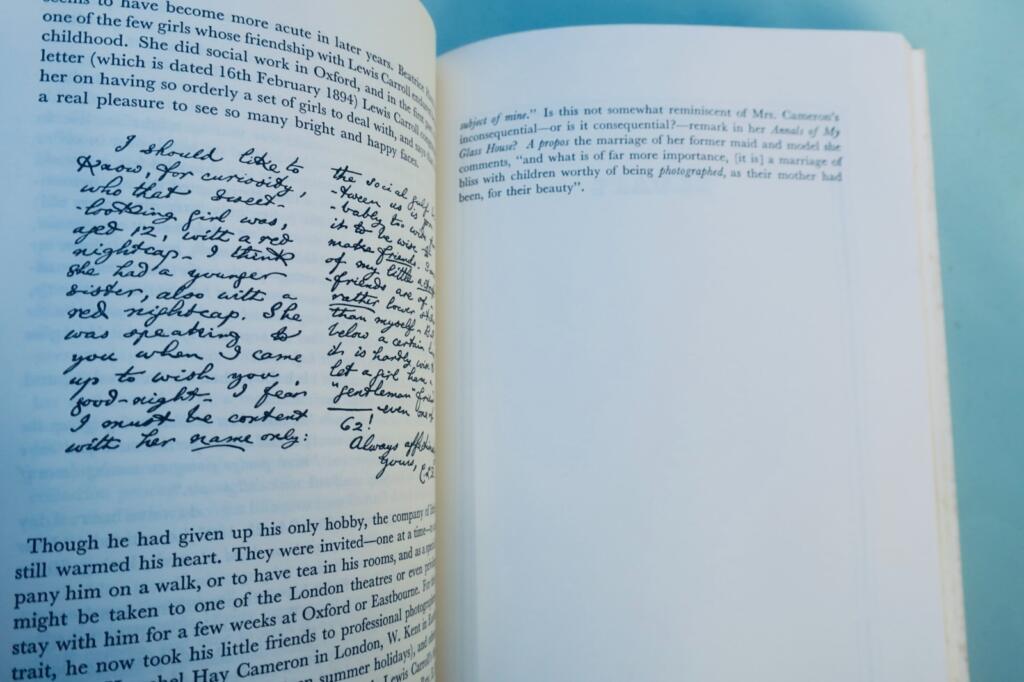 seems to have become more acute in later years. Beatrice
one of the few girls whose friendship with Lewis Carroll
childhood. She did social work in Oxford, and in the first
letter (which is dated 16th February 1894) Lewis Carroll
her on having so orderly a set of girls to deal with, and says
a real pleasure to see so many bright and happy faces.
I should like to
know, for curiosity,
who that sweet-
-looking girl was,
aged 12, with a red
nightcap. I think
she had a younger
sister, also with a
red nightcap. She
was speaking to
you when I came
up to wish you
good-night. I fear
I must be content
with her name only:
the social gulf
-tween us is
-bably too wide
it to be wise to
make friends.
of my little
-friends are of
rather lower
than myself.
below a certain
it is hardly wise
let a girl have a
"gentleman"
even one of
62!
Always
yours,
Though he had given up his only hobby, the company of
still warmed his heart. They were invited—one at a time—
pany him on a walk, or to have tea in his rooms, and as a
might be taken to one of the London theatres or even
stay with him for a few weeks at Oxford or Eastbourne. For
trait, he now took his little friends to professional
Hay Cameron in London, W. Kent in
summer holidays), and
Lewis Carroll's
subject of mine." Is this not somewhat reminiscent of Mrs. Cameron's
inconsequential—or is it consequential?—remark in her Annals of My
Glass House? A propos the marriage of her former maid and model she
comments, "and what is of far more importance, [it is] a marriage of
bliss with children worthy of being photographed, as their mother had
been, for their beauty".